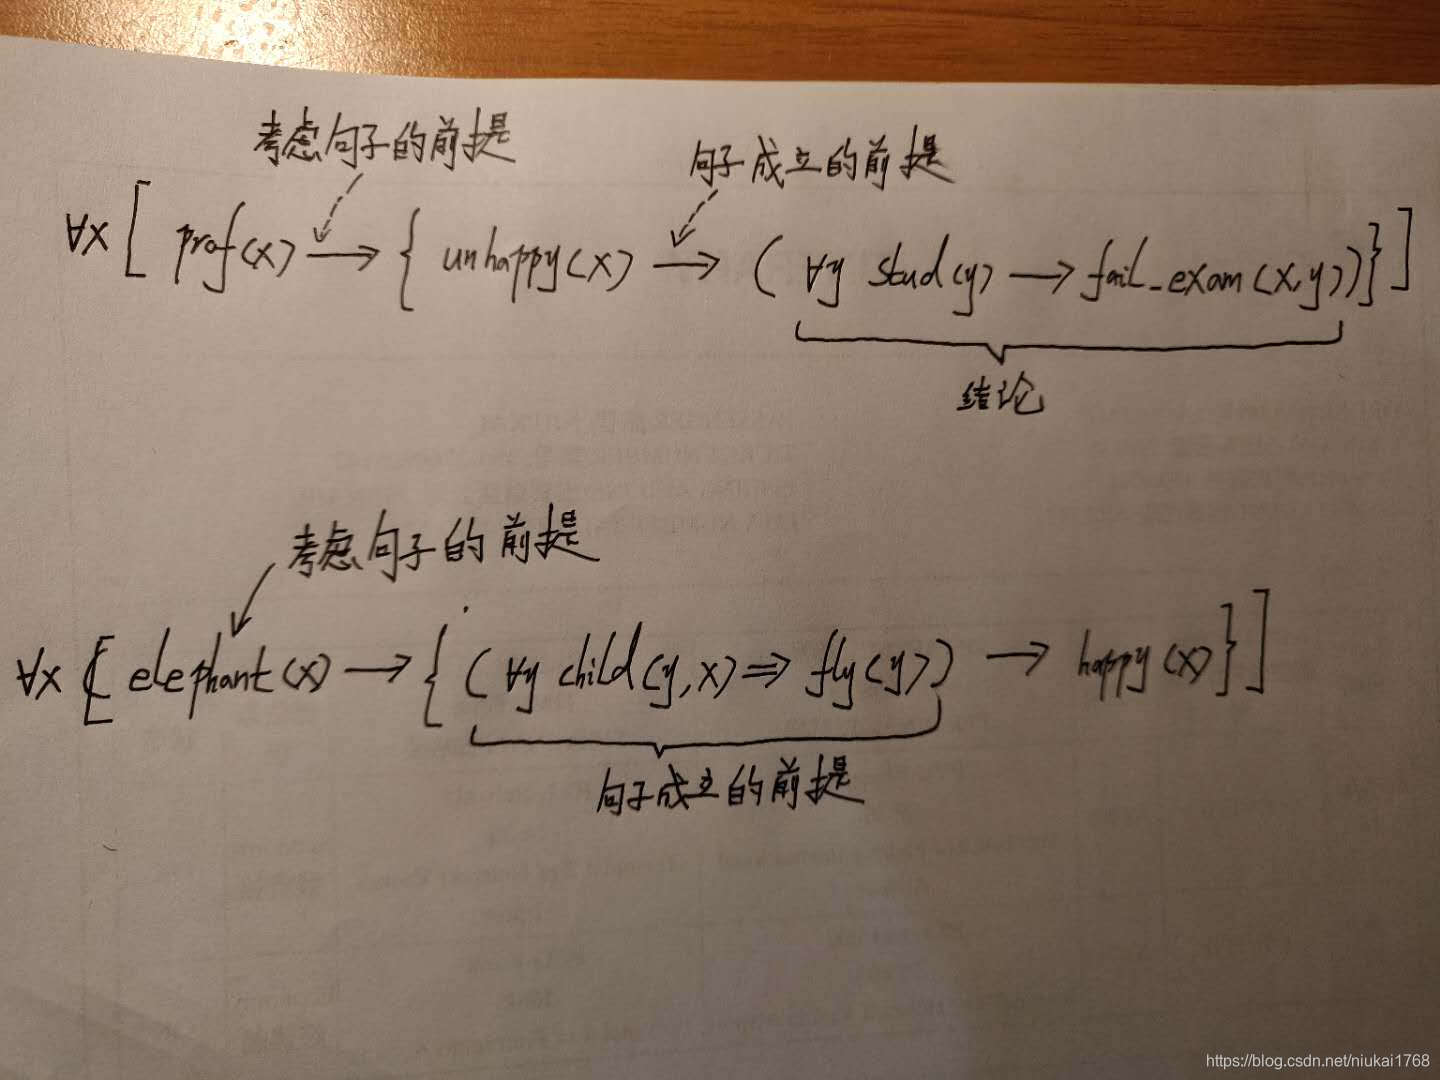 考虑句子的前提
句子成立的前提
∀x [ prof(x) → { unhappy(x) → ( ∀y stud(y) → fail_exam(x,y))}]
结论
考虑句子的前提
∀x [ elephant(x) → { ( ∀y child(y,x) ⇒ fly(y)) → happy(x)}]
句子成立的前提
https://blog.csdn.net/niukai1768